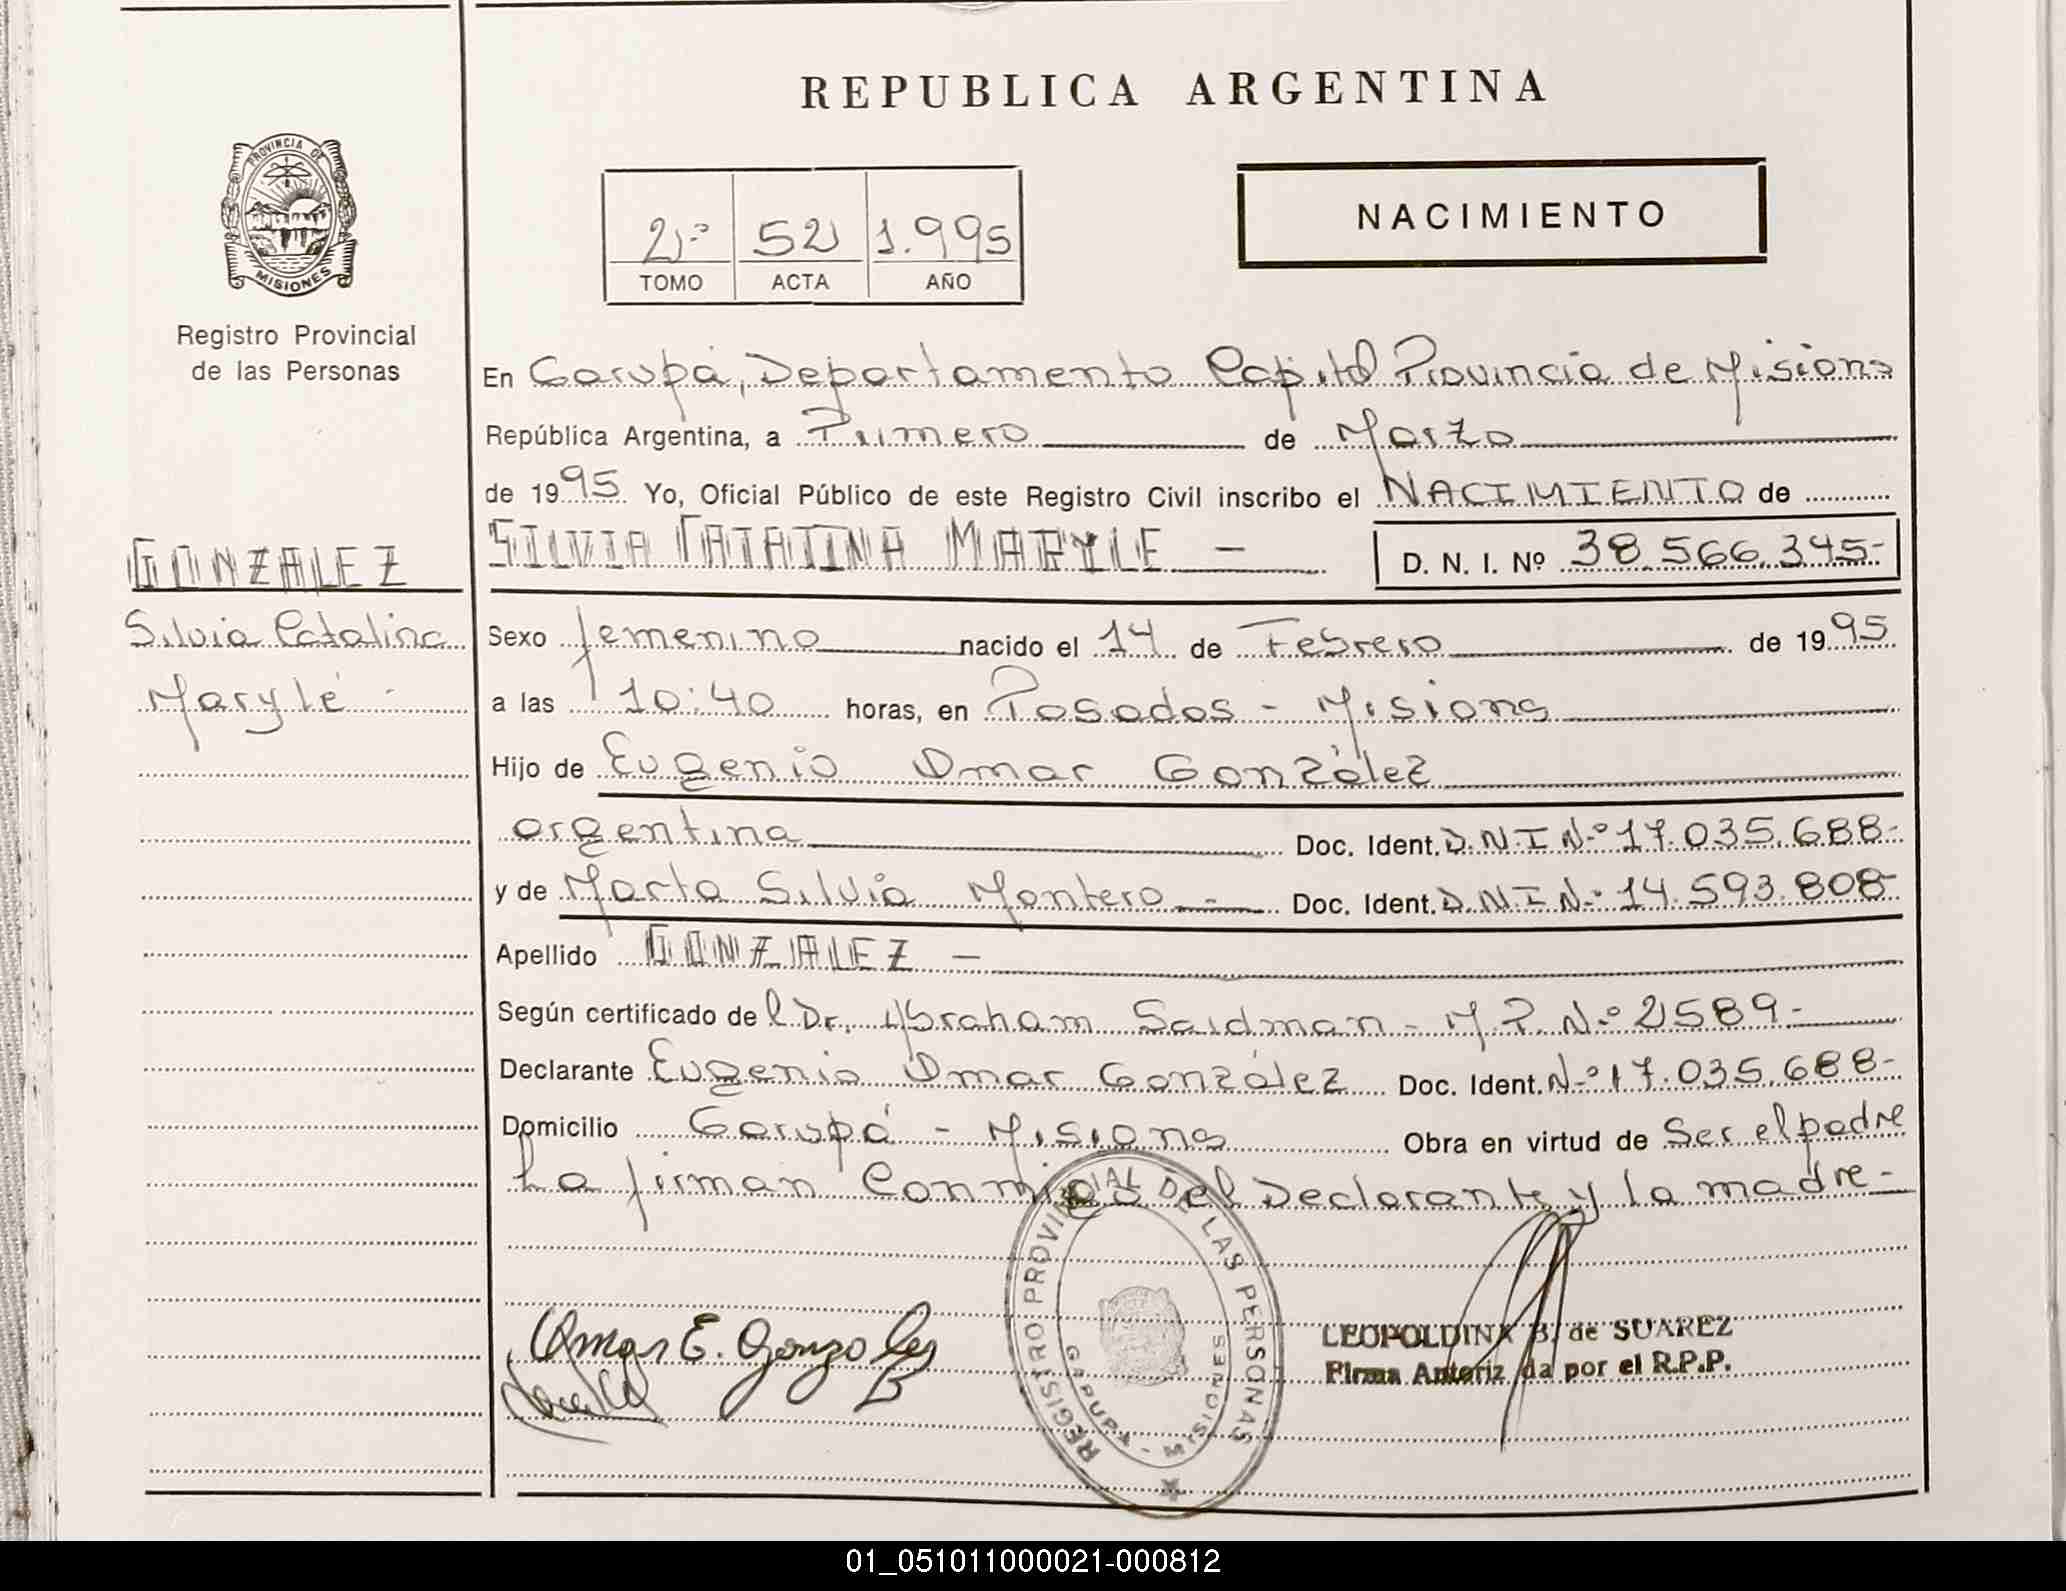 REPUBLICA ARGENTINA
PROVINCIA DE
MISIONES
Registro Provincial
de las Personas
2º 52 1.995
TOMO ACTA AÑO
NACIMIENTO
En Garupá, Departamento Capital Provincia de Misiones
República Argentina, a Primero de Marzo
de 1995 Yo, Oficial Público de este Registro Civil inscribo el NACIMIENTO de
SILVIA CATALINA MARYLE - D. N. I. Nº 38.566.345-
GONZALEZ
Silvia Catalina
Marylé -
Sexo femenino nacido el 14 de Febrero de 1995
a las 10:40 horas, en Posadas - Misiones
Hijo de Eugenio Omar González
argentina Doc. Ident. D.N.I Nº 17.035.688-
y de Marta Silvia Montero - Doc. Ident. D.N.I Nº 14.593.808-
Apellido GONZALEZ -
Según certificado del Dr. Abraham Saidman - M.P. Nº 2589-
Declarante Eugenio Omar González Doc. Ident. Nº 17.035.688-
Domicilio Garupá - Misiones Obra en virtud de Ser el padre
La firman Conmigo Del Declarante y la madre -
Omar E. Gonzalez
REGISTRO PROVINCIAL DE LAS PERSONAS
GARUPA - MISIONES
LEOPOLDINA B. de SUAREZ
Firma Autoriz da por el R.P.P.
01_051011000021-000812